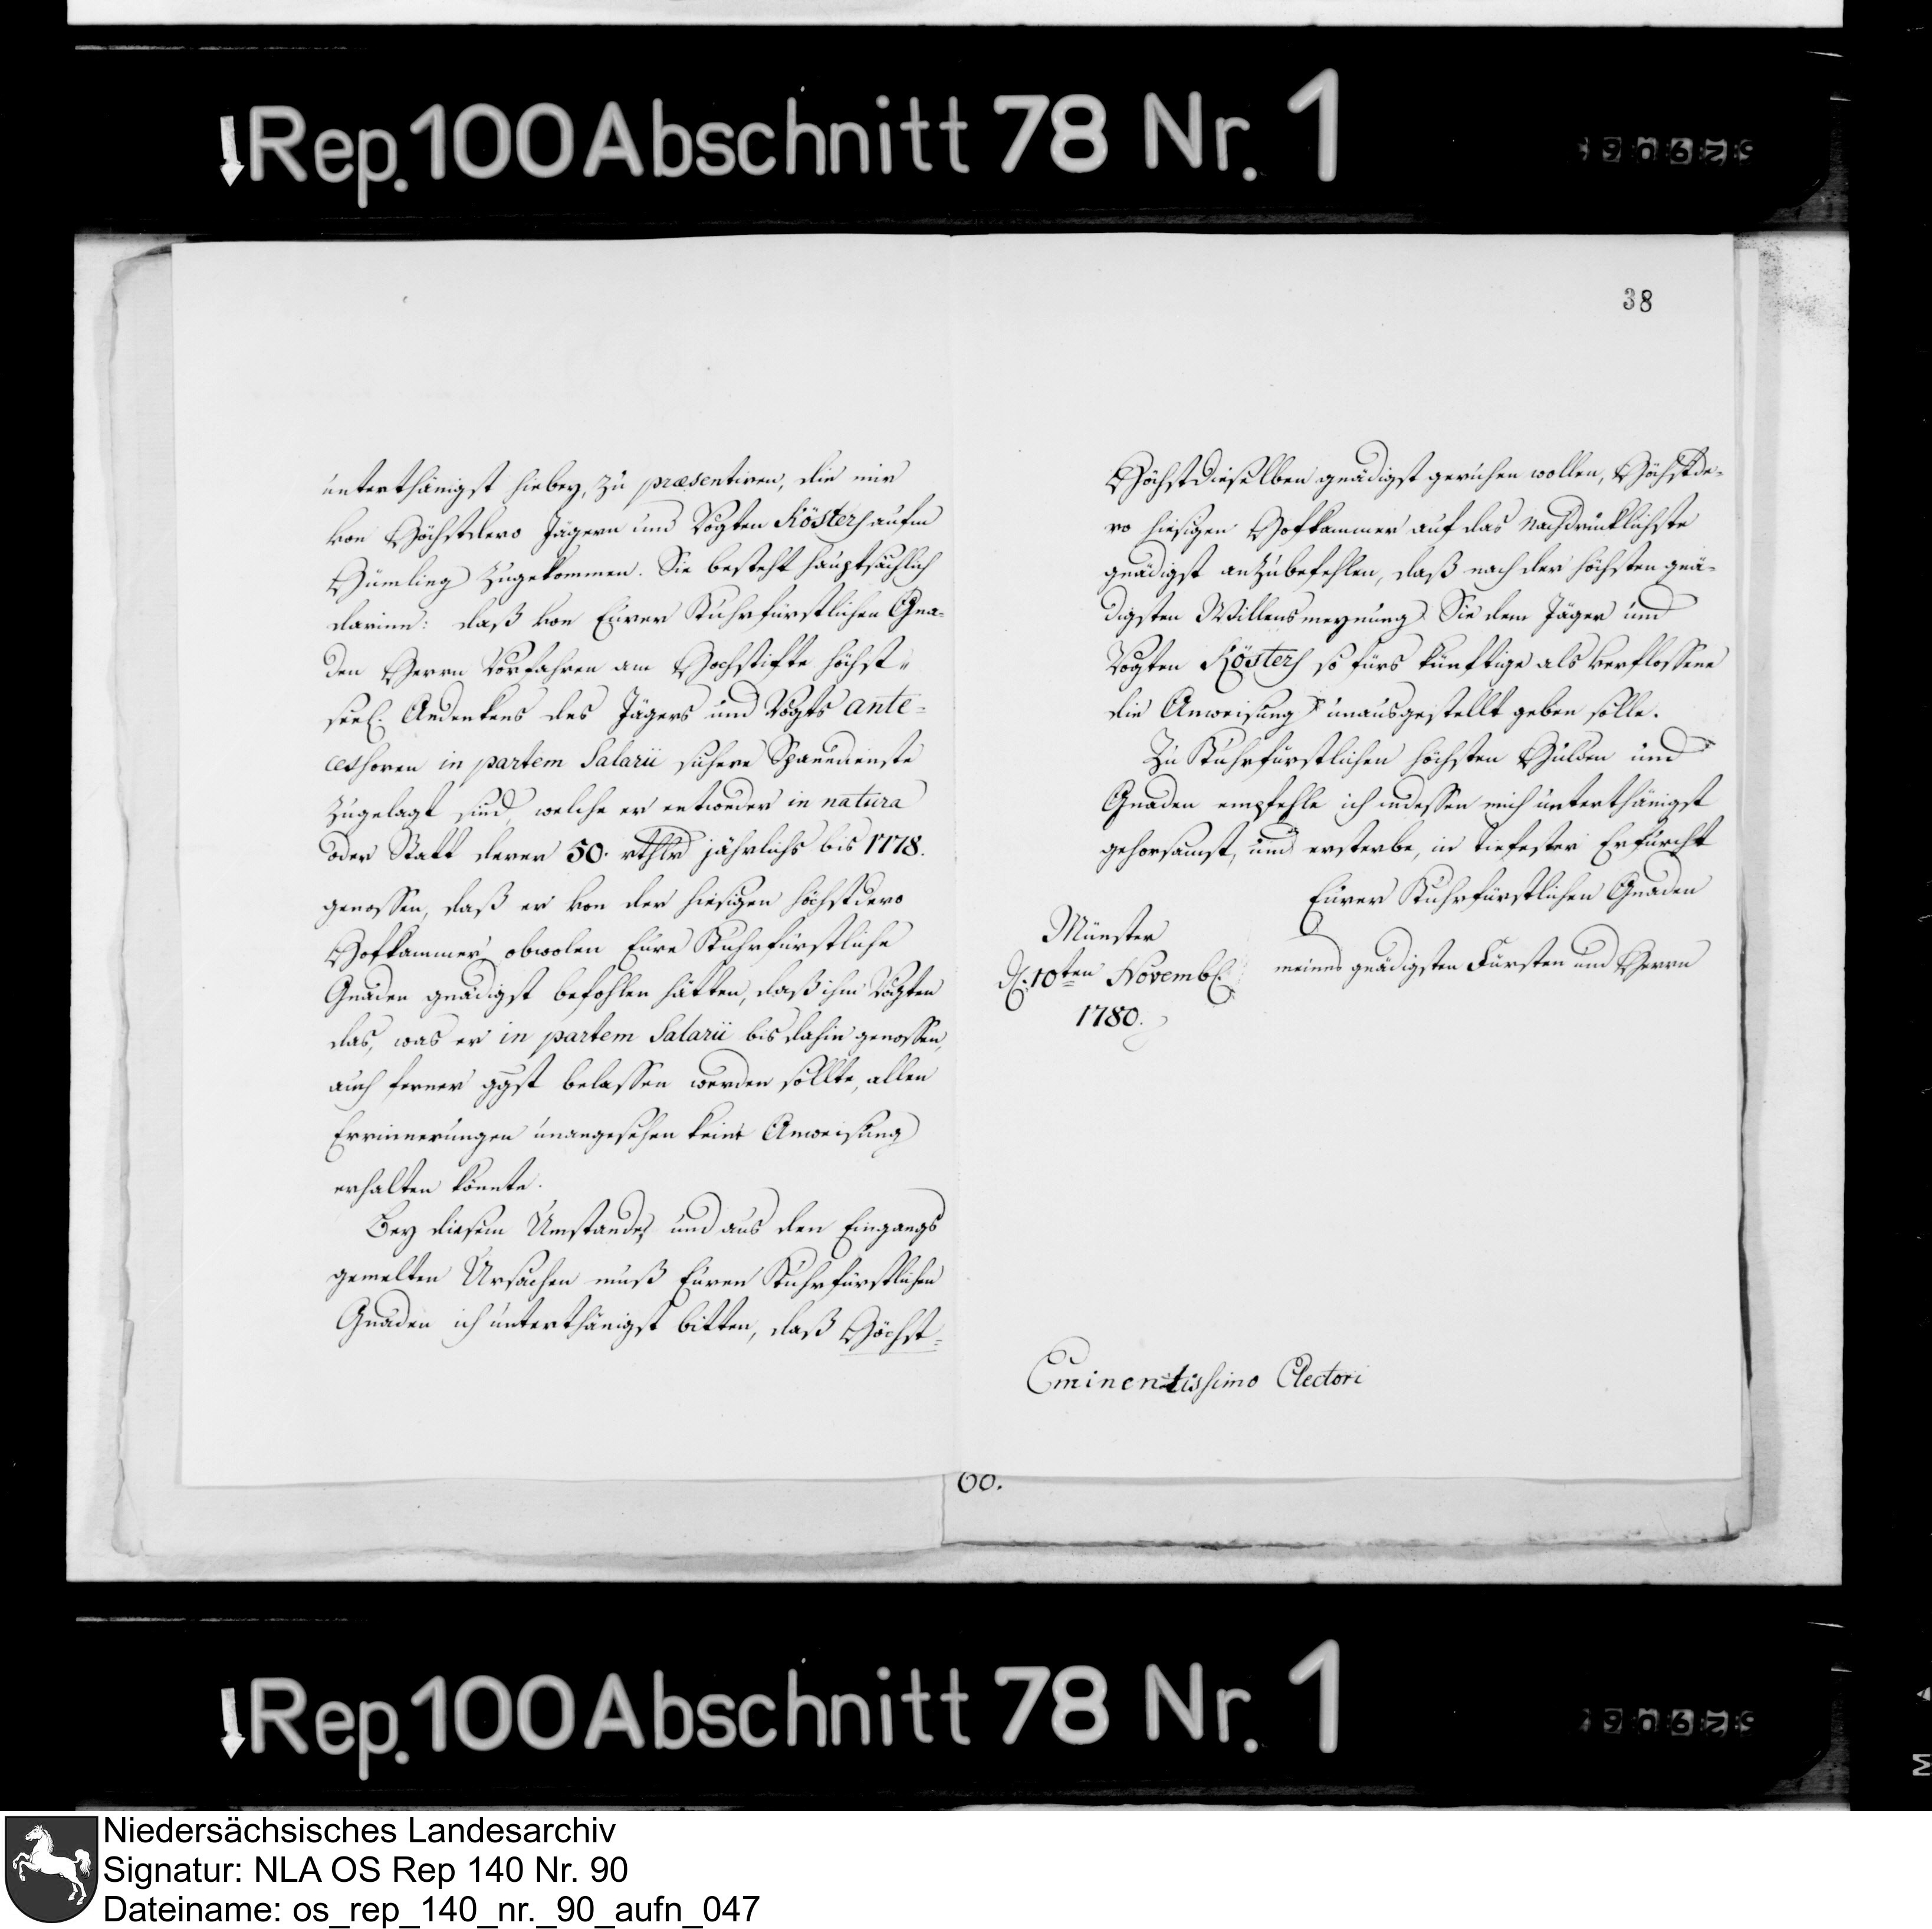 Rep. 100 Abschnitt 78 Nr. 1
38
unterthänigst hiebey, zu præsentiren, die mir
von Höchstdero Jägern und Vogten Kösters aufm
Hümling zugekommen. Sie besteht hauptsächlich
darinn: daß von Eurer Kuhrfürstlichen Gna-
den Herrn Vorfahren am Hochstifte höchst-
seel. Andenkens des Jägers und Vogts ante-
cessoren in partem Salarii sichere Spanndienste
zugelagt sind, welche er entweder in natura
oder Statt derer 50. rthlr jährlichs bis 1778.
genossen, daß er von der hiesigen höchstdero
Hofkammer obwolen Eure Kuhrfürstliche
Gnaden gnädigst befohlen hätten, daß ihm Vogten
das, was er in partem Salarii bis dahin genossen,
auch ferner ggst belassen werden sollte, allen
Erinnerungen unangesehen keine Anweisung
erhalten könnte.
Bey diesem Umstande, und aus den Eingangs
gemelten Ursachen muß Euren Kuhrfürstlichen
Gnaden ich unterthänigst bitten, daß Höchst-
Höchstdieselben gnädigst geruhen wollen, Höchstde-
ro hiesigen Hofkammer auf das nachdrücklichste
gnädigst anzubefehlen, daß nach der höchsten gnä-
digsten Willensmeynung Sie dem Jäger und
Vogten Kösters so fürs künftige als verflossene
die Anweisung unausgestellt geben solle.
Zu Kuhrfürstlichen höchsten Hulden und
Gnaden empfehle ich indessen mich unterthänigst
gehorsamst, und ersterbe, in tiefester Erfurcht
Eurer Kuhrfürstlichen Gnaden
Münster
d. 10ten Novemb.
meines gnädigsten Fürsten und Herrn
1780.
Eminentissimo Electori
60.
Rep. 100 Abschnitt 78 Nr. 1
Niedersächsisches Landesarchiv
Signatur: NLA OS Rep 140 Nr. 90
Dateiname: os_rep_140_nr._90_aufn_047